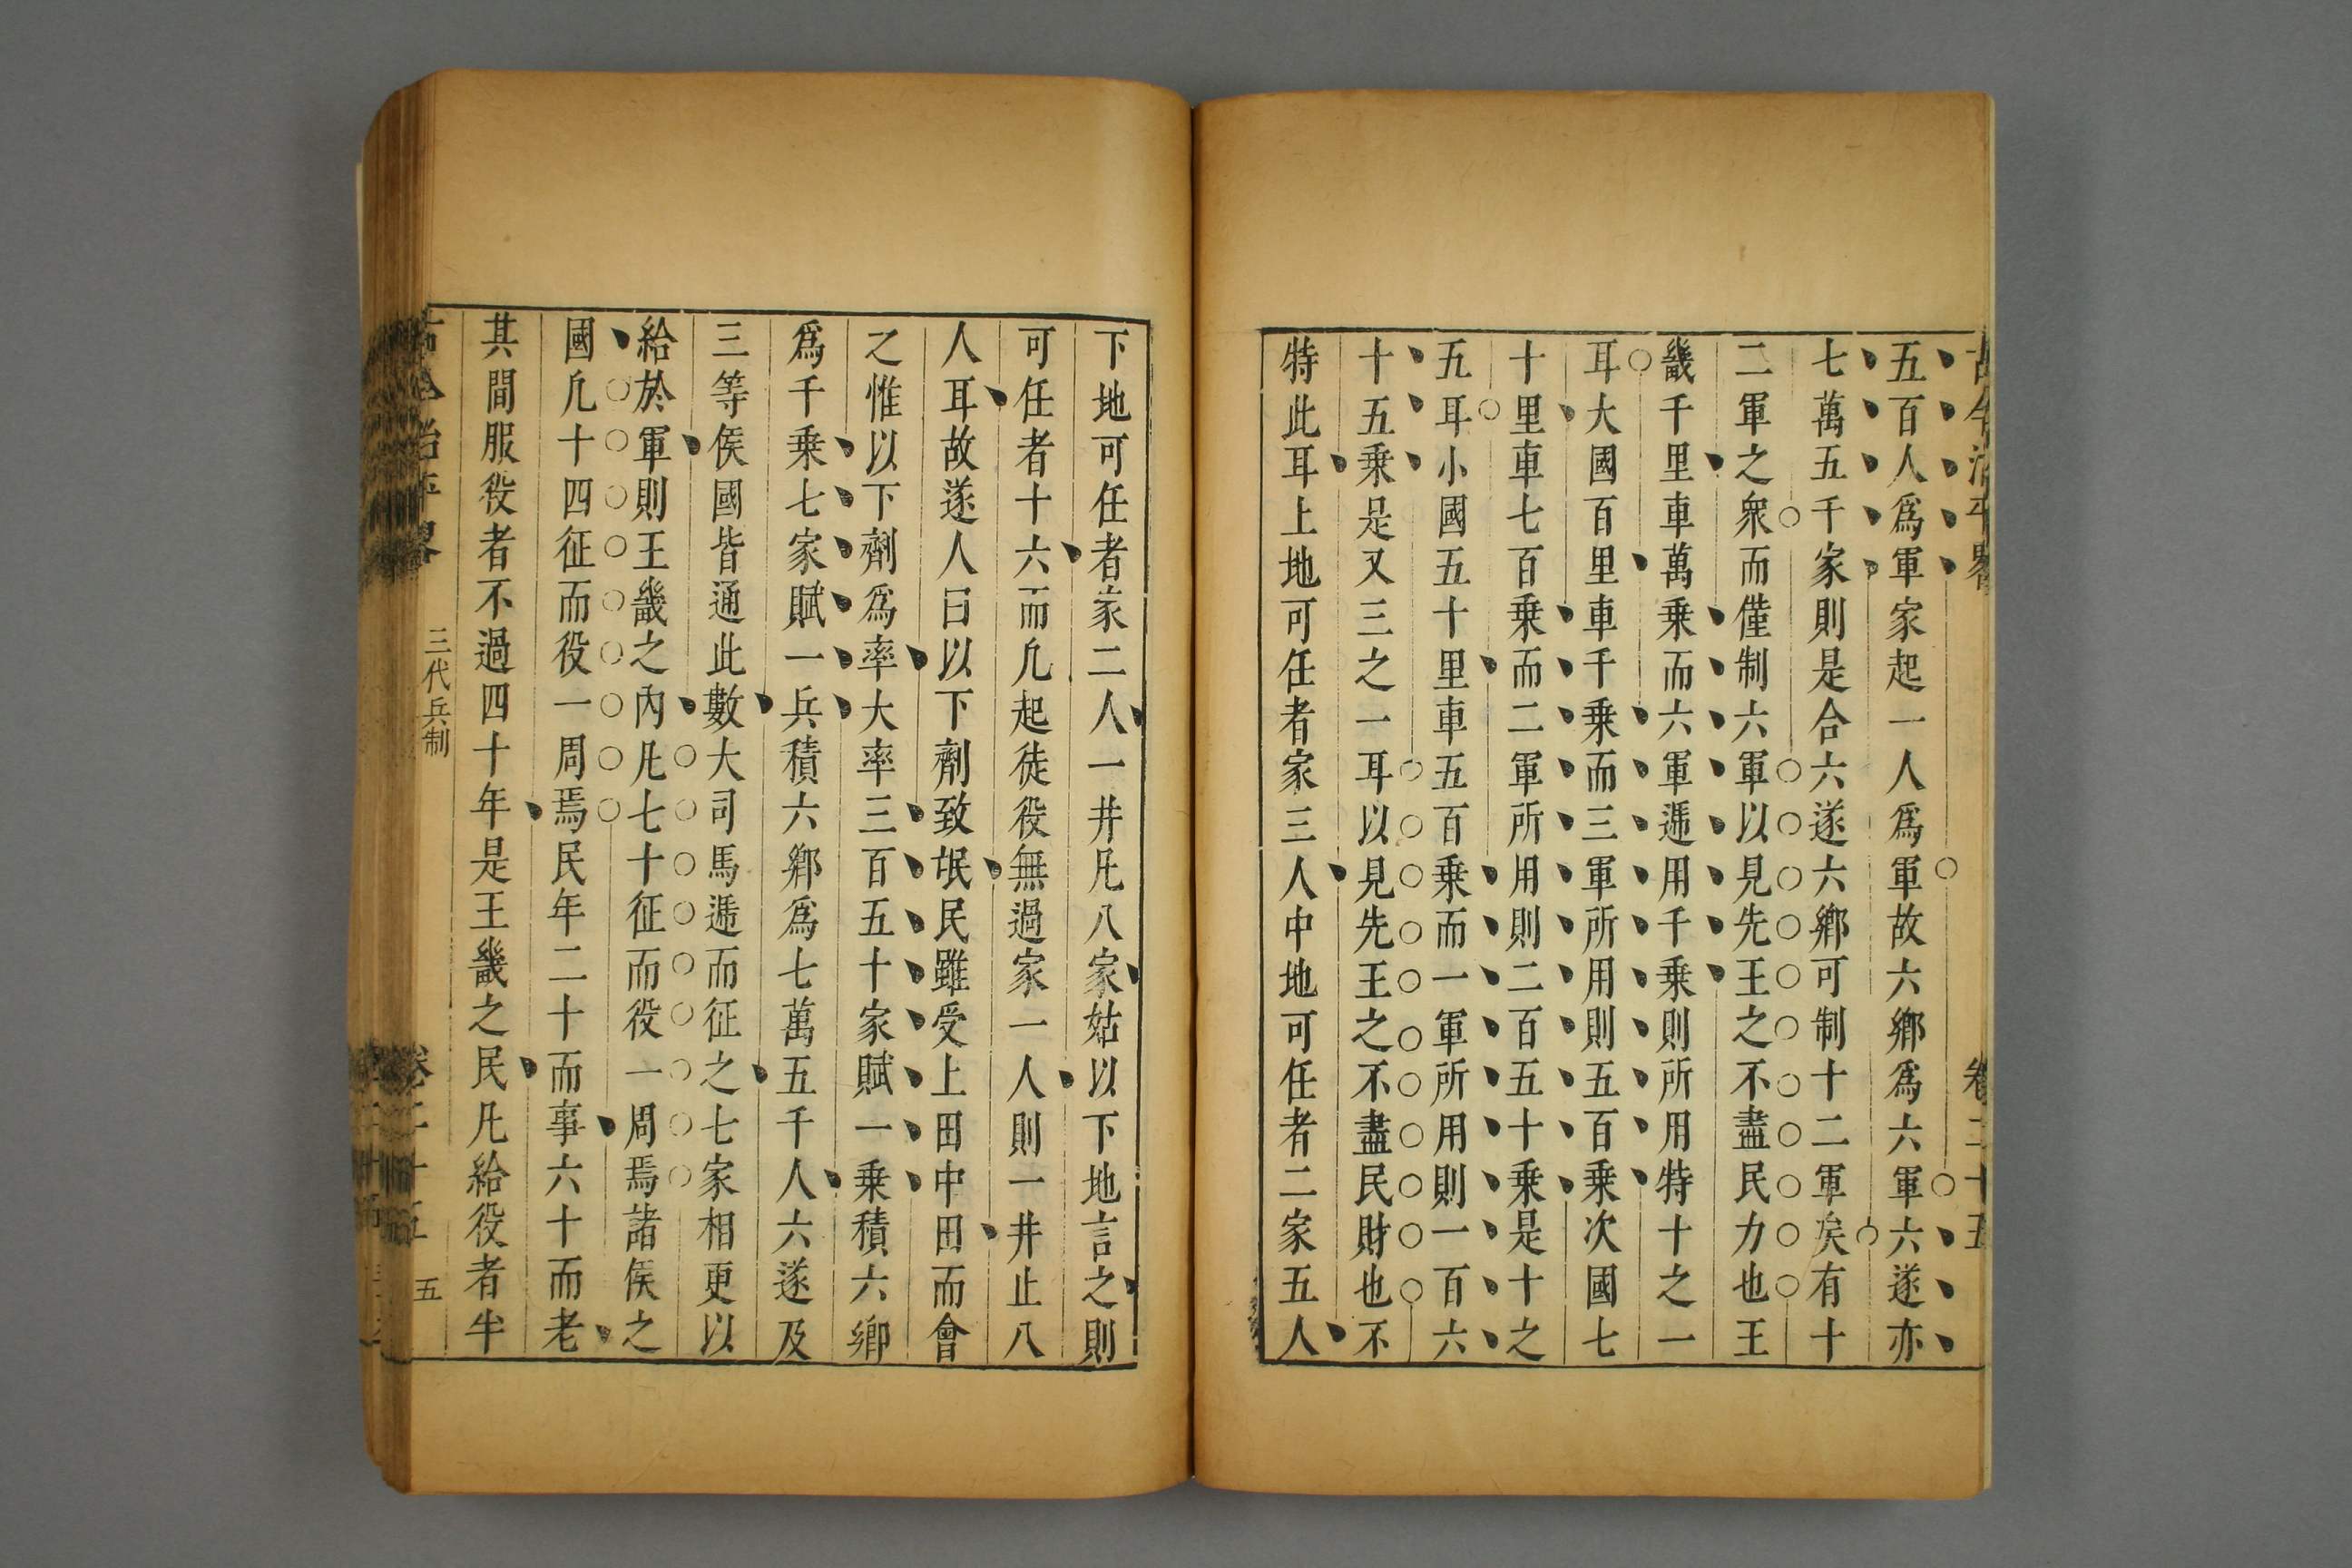 五百人爲軍家起一人爲軍故六鄉爲六軍六遂亦
七萬五千家則是合六遂六鄉可制十二軍矣有十
二軍之衆而僅制六軍以見先王之不盡民力也王
畿千里車萬乗而六軍遞用千乗則所用特十之一
耳大國百里車千乗而三軍所用則五百乗次國七
十里車七百乗而二軍所用則二百五十乗是十之
五耳小國五十里車五百乗而一軍所用則一百六
十五乗是又三之一耳以見先王之不盡民財也不
特此耳上地可任者家三人中地可任者二家五人
下地可任者家二人一井凡八家姑以下地言之則
可任者十六而凡起徒役無過家一人則一井止八
人耳故遂人曰以下劑致氓民雖受上田中田而會
之惟以下劑爲率大率三百五十家賦一乗積六鄉
爲千乗七家賦一兵積六鄉爲七萬五千人六遂及
三等侯國皆通此數大司馬遞而征之七家相更以
給於軍則王畿之內凡七十征而役一周焉諸侯之
國凡十四征而役一周焉民年二十而事六十而老
其間服役者不過四十年是王畿之民凡給役者半
三代兵制
卷二十五
五